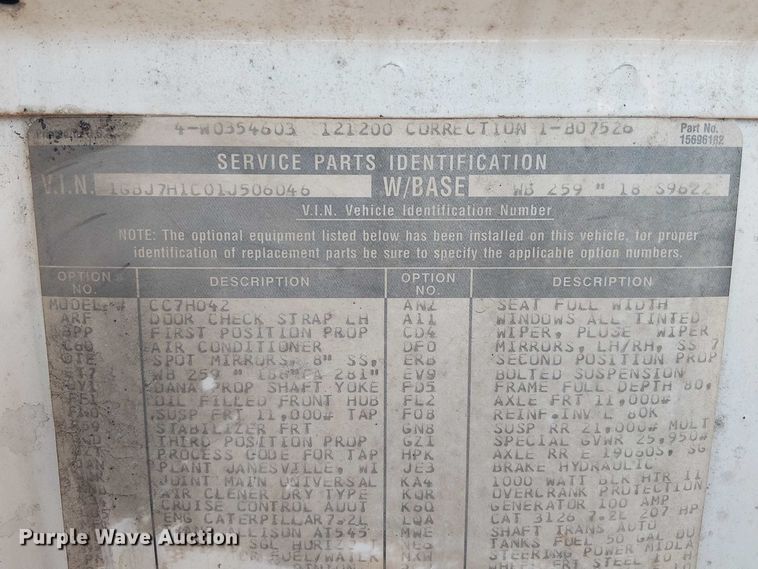 4-W0354603 121200 CORRECTION 1-B07526
Part No.
15696182
SERVICE PARTS IDENTIFICATION
V.I.N. 1GBJ7H1C01J506046 W/BASE WB 259 " 18 S9622
V.I.N. Vehicle Identification Number
NOTE: The optional equipment listed below has been installed on this vehicle, for proper
identification of replacement parts be sure to specify the applicable option numbers.
OPTION NO. DESCRIPTION OPTION NO. DESCRIPTION
MODEL # CC7H042 AN2 SEAT FULL WIDTH
ARF DOOR CHECK STRAP LH A11 WINDOWS ALL TINTED
BPP FIRST POSITION PROP CD4 WIPER, PLUSE WIPER
C60 AIR CONDITIONER DF0 MIRRORS, LH/RH, SS 7
SPOT MIRRORS, 8" SS, ERB SECOND POSITION PROP
WB 259 " CA 281" EV9 BOLTED SUSPENSION
DANA PROP SHAFT YOKE FD5 FRAME FULL DEPTH 80,
OIL FILLED FRONT HUB FL2 AXLE FRT 11,000#
SUSP FRT 11,000# TAP F08 REINF. INV L 80K
STABILIZER FRT GN8 SUSP RR 21,000# MULT
THIRD POSITION PROP GZ1 SPECIAL GVWR 25,950#
PROCESS CODE FOR TAP HPK AXLE RR E 19060S, SG
PLANT JANESVILLE, WI JE3 BRAKE HYDRAULIC
JOINT MAIN UNIVERSAL KA4 1000 WATT BLK HTR 11
AIR CLENER DRY TYPE KQR OVERCRANK PROTECTION
CRUISE CONTROL AUUT K6Q GENERATOR 100 AMP
ENG CATERPILLAR7.2L LQA CAT 3126 7.2L 207 HP
ALLISON AT545 MWE SHAFT TRANS AUTO
SGL HORIZ TANKS FUEL 50 GAL DU
FUEL/WATER STEERING POWER
STEEL
Purple Wave Auction